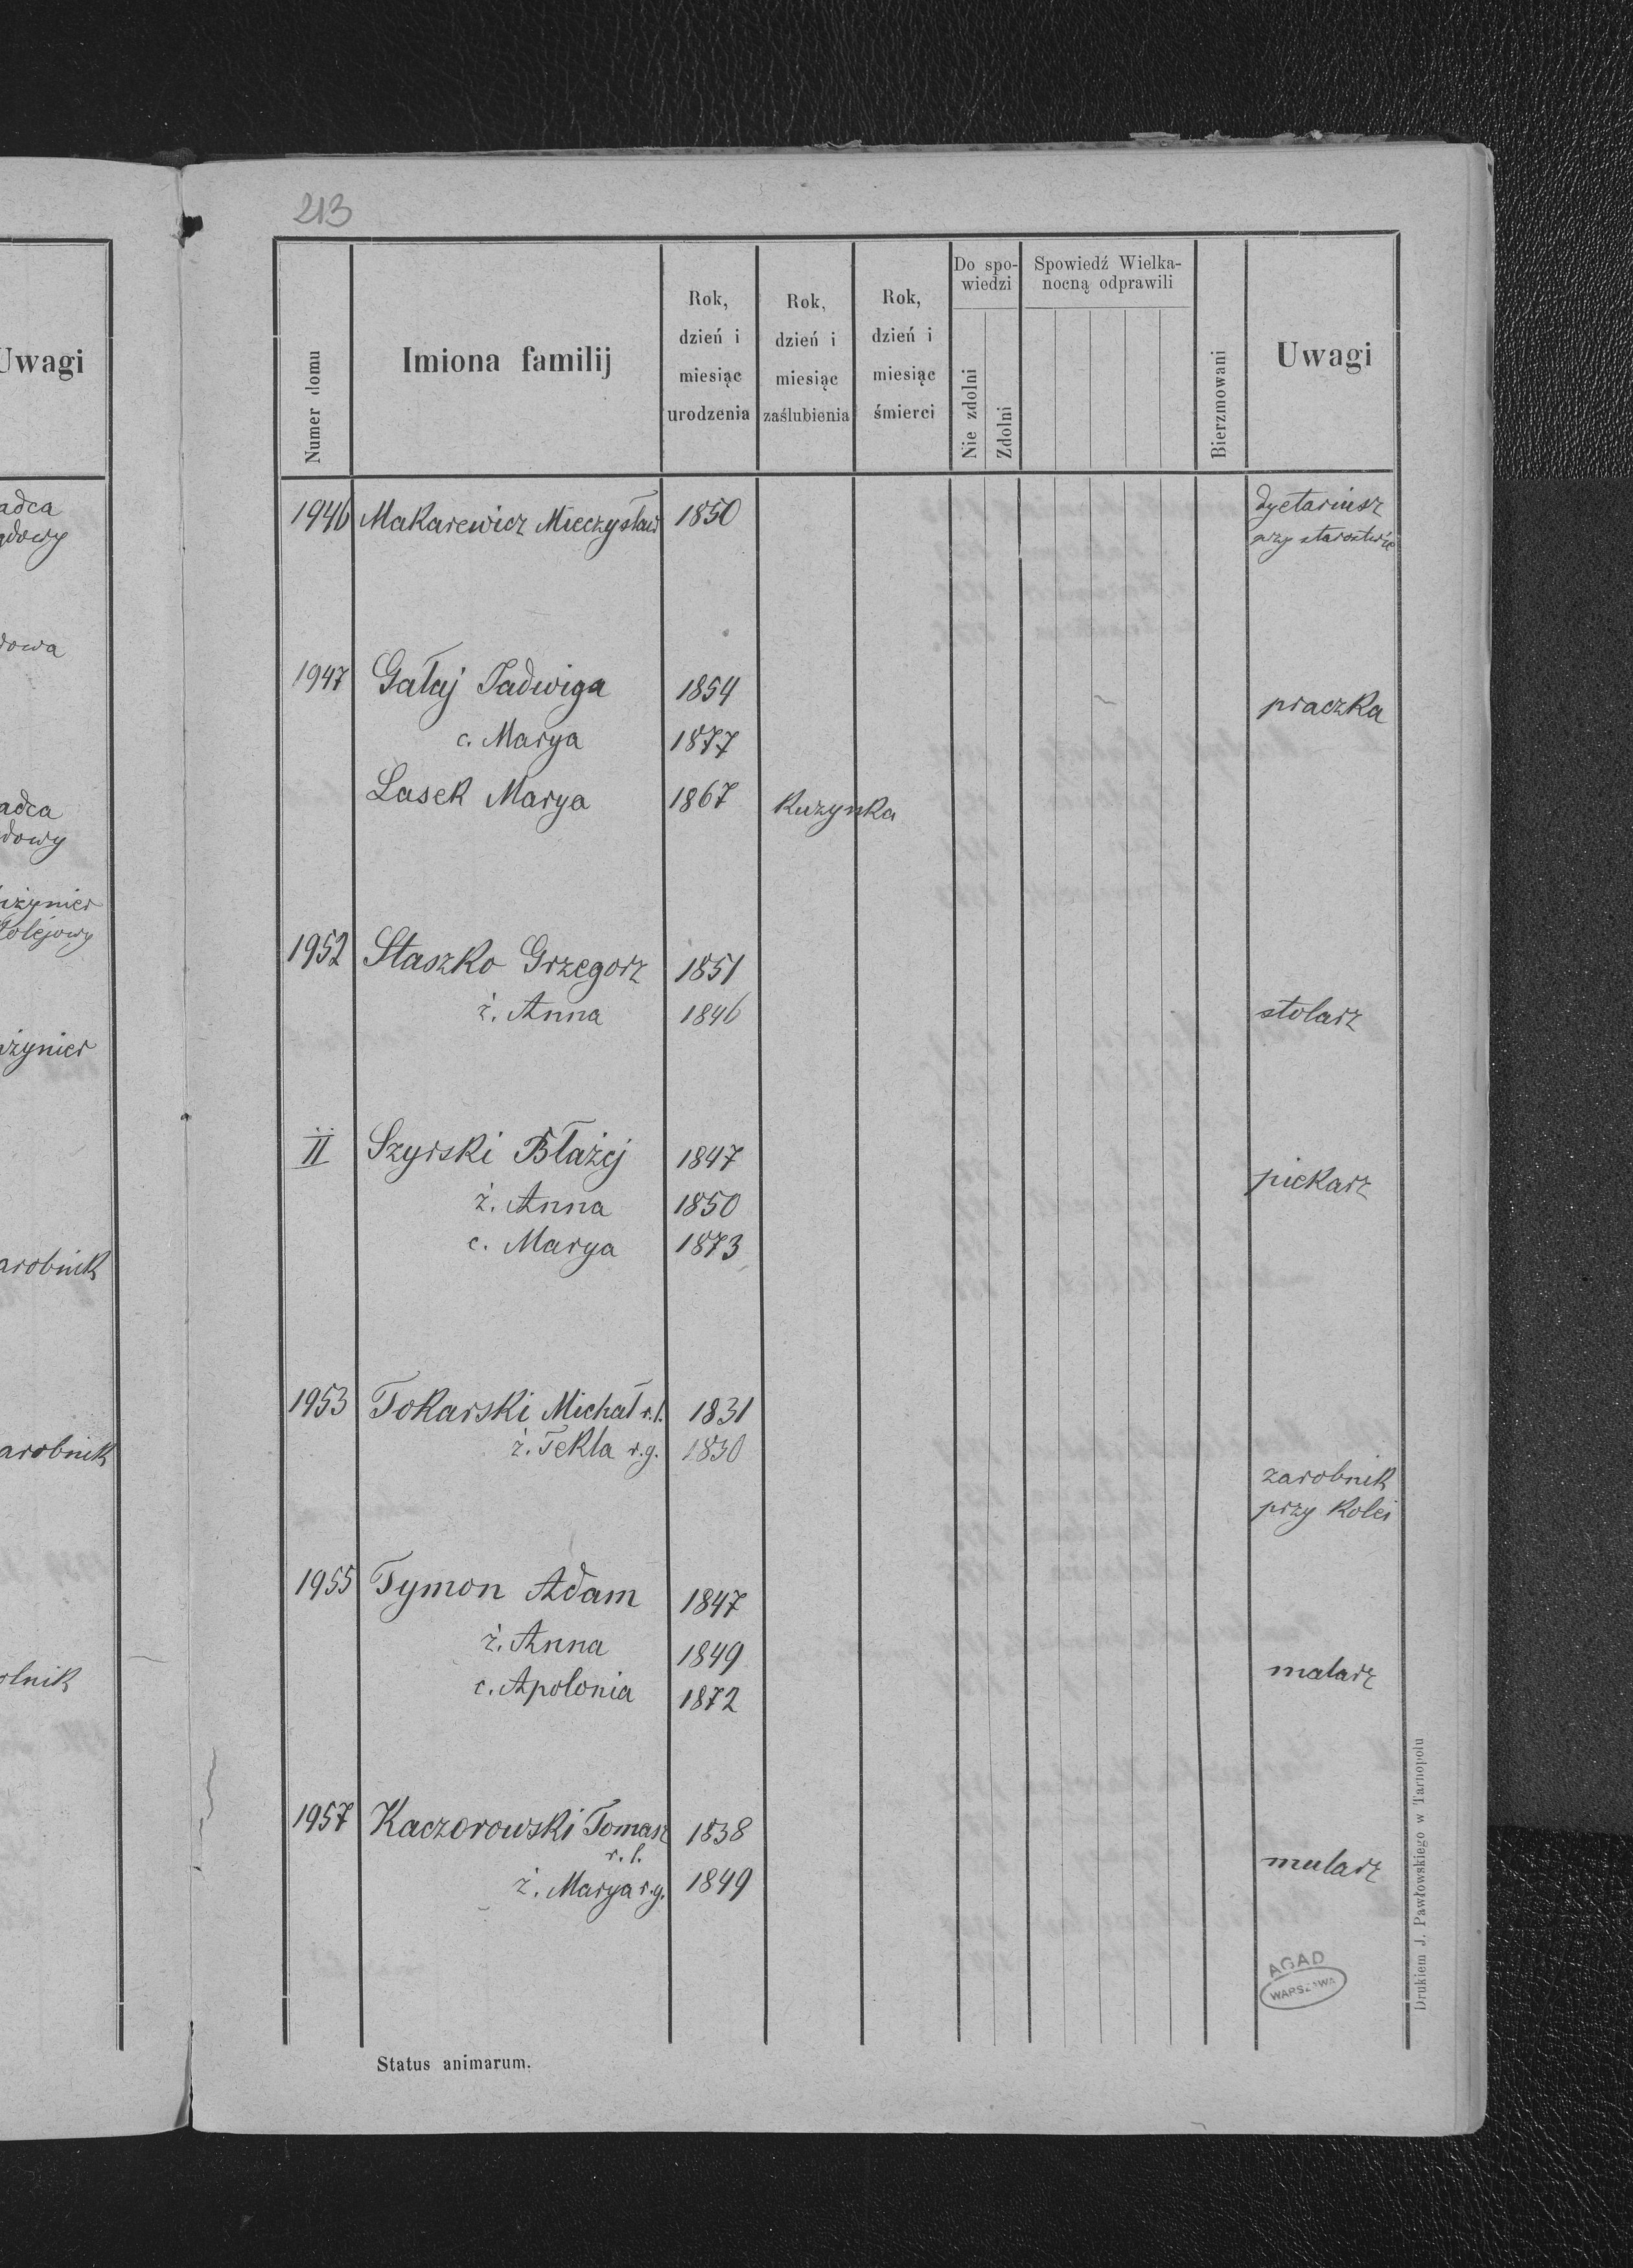 213
Uwagi
adca
dowy
dowa
adca
dowy
żynier
Kolejowy
żynier
arobnik
arobnik
olnik
Numer domu
Imiona familij
Rok,
dzień i
miesiąc
urodzenia
Rok,
dzień i
miesiąc
zaślubienia
Rok,
dzień i
miesiąc
śmierci
Do spo-
wiedzi
Nie zdolni
Zdolni
Spowiedź Wielka-
nocną odprawili
Bierzmowani
Uwagi
1946 Makarewicz Mieczysław 1850 dyetariusz
przy starostwie
1947 Gałaj Jadwiga 1854 praczka
c. Marya 1877
Lasek Marya 1867 Kuzynka
1952 Staszko Grzegorz 1851
ż. Anna 1846 stolarz
II Szyrski Błażej 1847 piekarz
ż. Anna 1850
c. Marya 1873
1953 Tokarski Michał r.l. 1831
ż. Tekla r.g. 1830
zarobnik
przy Kolei
1955 Tymon Adam 1847
ż. Anna 1849
c. Apolonia 1872 malarz
1957 Kaczorowski Tomasz 1838
r.l.
ż. Marya r.g. 1849 mularz
AGAD
WARSZAWA
Status animarum.
Drukiem J. Pawłowskiego w Tarnopolu